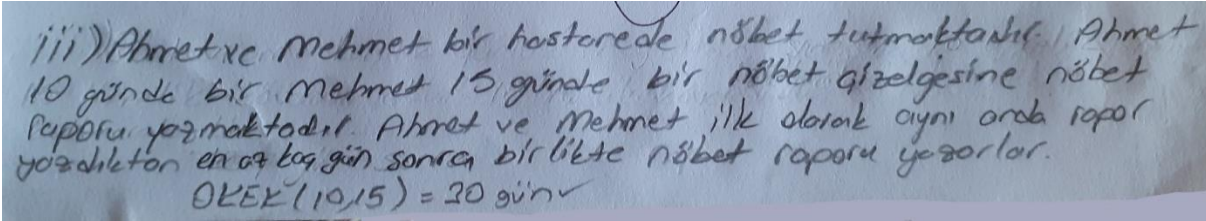 iii) Ahmet ve Mehmet bir hastanede nöbet tutmaktadır. Ahmet
10 günde bir Mehmet 15 günde bir nöbet çizelgesine nöbet
raporu yazmaktadır. Ahmet ve Mehmet ilk olarak aynı anda rapor
yazdıktan en az kaç gün sonra birlikte nöbet raporu yazarlar.
OKEK (10,15) = 30 gün ✓